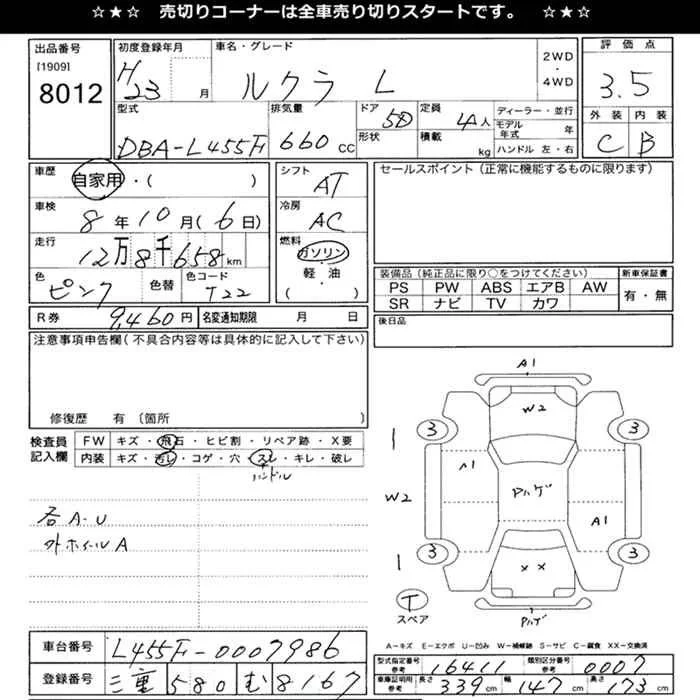 ☆★☆ 売切りコーナーは全車売り切りスタートです。 ☆★☆
出品番号 [1909] 8012
初度登録年月 H23 月
車名・グレード ルクラ L
2WD・4WD
評価点 3.5
外装 C 内装 B
型式 DBA-L455F
排気量 660 CC
ドア 5D 形状
定員 4人 積載 kg
ディーラー・並行
モデル年式 年
ハンドル 左・右
車歴 自家用・( )
車検 8年10月(6日)
走行 12万8千658km
色 ピンク 色替 色コード T22
シフト AT
冷房 AC
燃料 ガソリン 軽・油 ( )
セールスポイント(正常に機能するものに限ります)
装備品(純正品に限り○をつけてください) 新車保証書
PS PW ABS エアB AW 有・無
SR ナビ TV カワ
R券 9,460円 名変通知期限 月 日
後日品
注意事項申告欄(不具合内容等は具体的に記入して下さい)
修復歴 有 〔箇所
検査員記入欄 FW キズ・飛石・ヒビ割・リペア跡・X要
内装 キズ・汚レ・コゲ・穴・スレ・キレ・破レ
ハンドル
各A-U
外ホイールA
A1
W2
3 3
A1
Pハゲ
A1
W2
3 3
××
T
スペア
Pハゲ
A−キズ E−エクボ U−凹み W−補修跡 S−サビ C−腐食 XX−交換済
車台番号 L455F-0007986
登録番号 三重 580 む 8167
型式指定番号 参考 16411 類別区分番号 参考 0007
車庫証明用 参考 長さ 339cm 幅 147cm 高さ 173cm